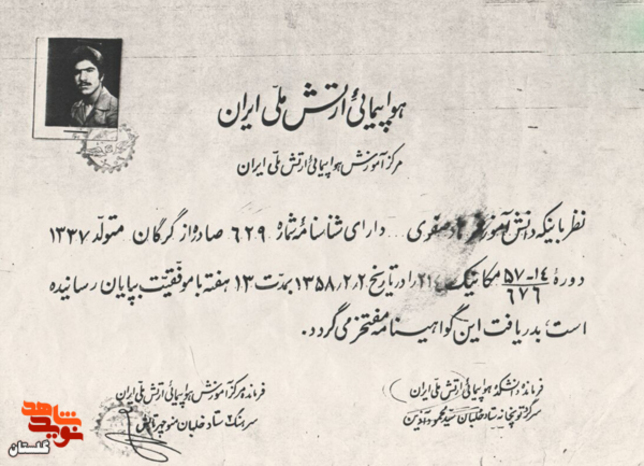 هواپیمائی ارتش ملّی ایران
مرکز آموزش هواپیمائی ارتش ملّی ایران
نظر باینکه دانش آموز صفوی دارای شناسنامه شماره ۶۲۹ صادره از گرگان متولد ۱۳۳۷
دورهٔ ۱۴-۵۷/۶۷۶ مکانیک ۲۱۴ را در تاریخ ۱۳۵۸٫۲٫۲ بمدت ۱۳ هفته با موفقیت بپایان رسانیده
است، بدریافت این گواهینامه مفتخر می گردد.
فرمانده دانشکده هواپیمائی ارتش ملی ایران
سرگرد توپخانه ستاد خلبان سید محمود
فرمانده مرکز آموزش هواپیمائی ارتش ملی ایران
سرهنگ ستاد خلبان منوچهر
نوید شاهد
گلستان